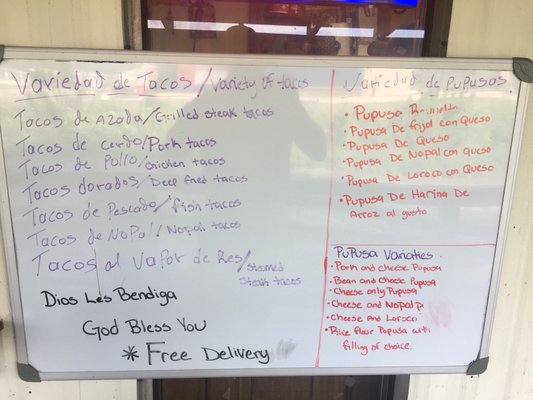 Variedad de Tacos / Variety of tacos
Tacos de Azada/Grilled steak tacos
Tacos de cerdo/Pork tacos
Tacos de Pollo/chicken tacos
Tacos dorados/Deep fried tacos
Tacos de Pescado/fish tacos
Tacos de Nopal/Nopal tacos
Tacos al vapor de Res/steamed
steak tacos
Dios Les Bendiga
God Bless You
* Free Delivery
Variedad de Pupusas
• Pupusa
• Pupusa De frijol con Queso
• Pupusa De Queso
• Pupusa De Nopal con Queso
• Pupusa De Loroco con Queso
• Pupusa De Harina De
Arroz al gusto
PuPusa Variaties
• Pork and cheese Pupusa
• Bean and cheese Pupusa
• Cheese only Pupusa
• Cheese and Nopal P
• Cheese And Loroco
• Rice flour Pupusa with
filling of choice.